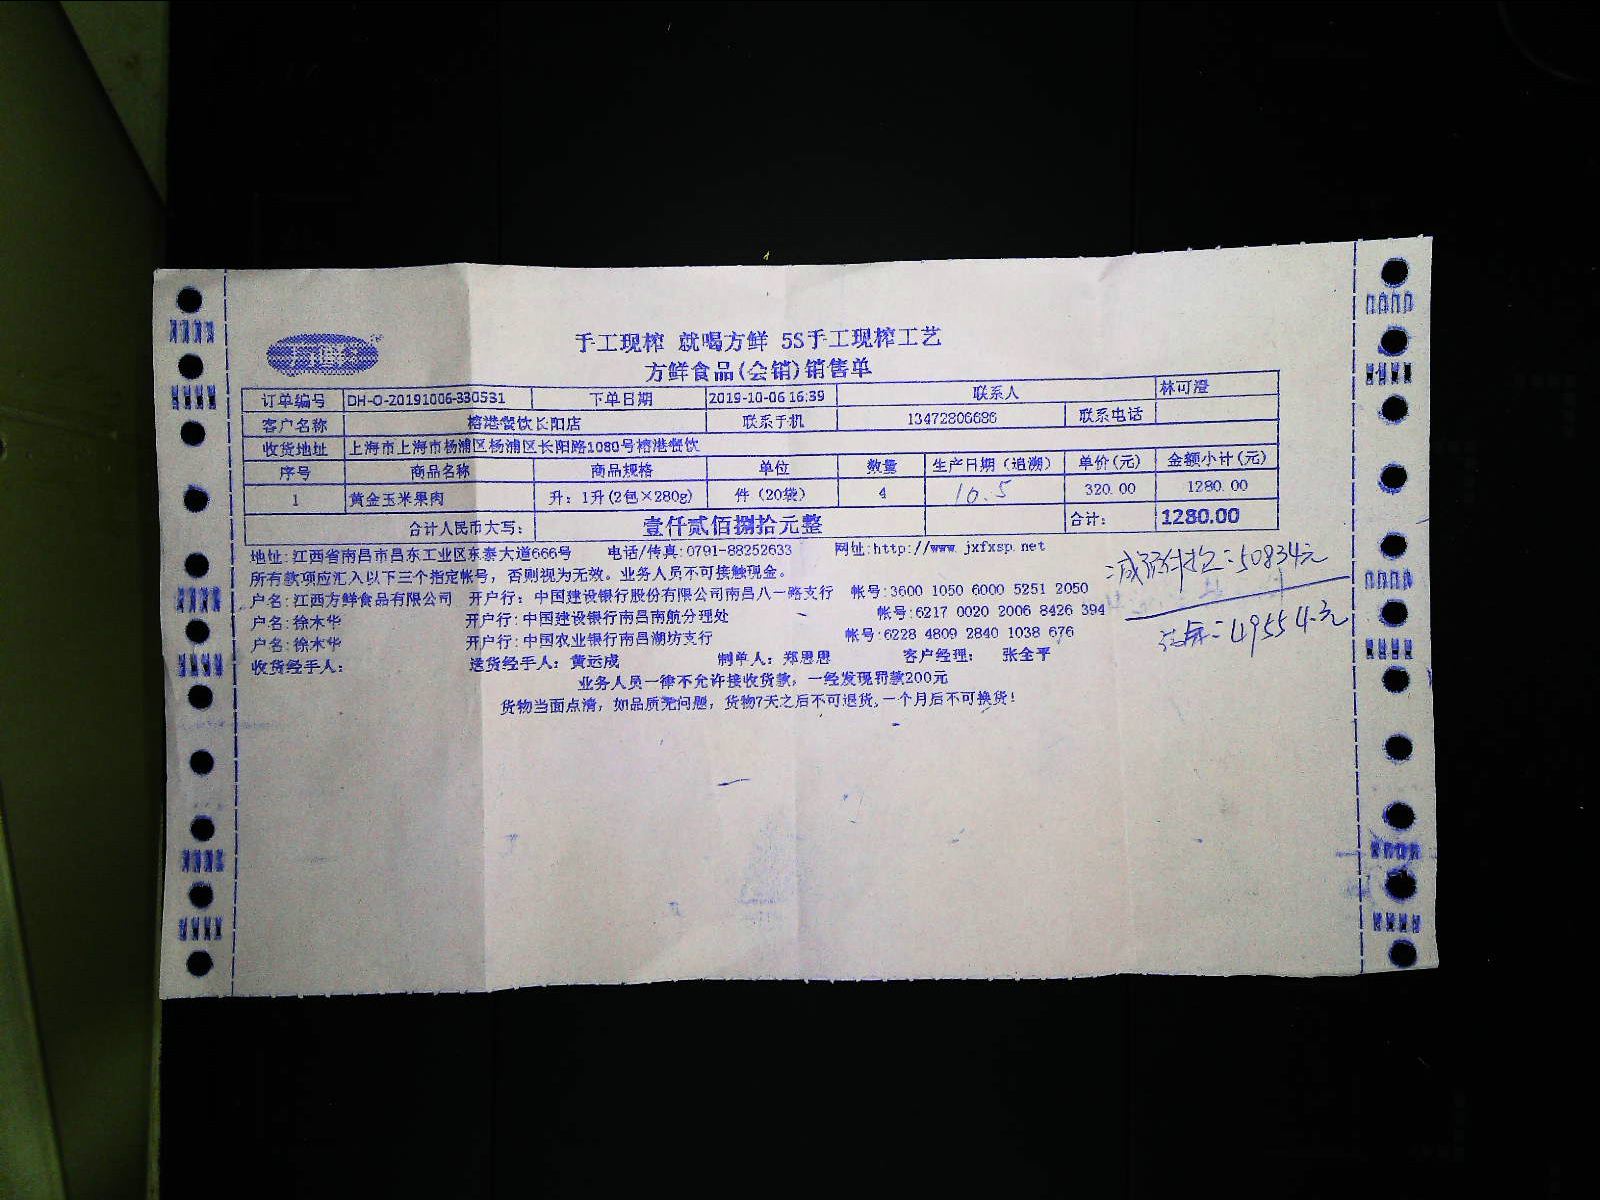 手工现榨 就喝方鲜 5S手工现榨工艺
方鲜食品(会销)销售单
订单编号 DH-O-20191006-330531 下单日期 2019-10-06 16:39 联系人 林可澄
客户名称 榕港餐饮长阳店 联系手机 13472806686 联系电话
收货地址 上海市上海市杨浦区杨浦区长阳路1080号榕港餐饮
序号 商品名称 商品规格 单位 数量 生产日期（追溯） 单价(元) 金额小计(元)
1 黄金玉米果肉 升：1升(2包×280g) 件（20袋） 4 10.5 320.00 1280.00
合计人民币大写： 壹仟贰佰捌拾元整 合计： 1280.00
地址:江西省南昌市昌东工业区东泰大道666号 电话/传真:0791-88252633 网址:http://www.jxfxsp.net
所有款项应汇入以下三个指定帐号，否则视为无效。业务人员不可接触现金。
户名:江西方鲜食品有限公司 开户行：中国建设银行股份有限公司南昌八一路支行 帐号:3600 1050 6000 5251 2050
户名:徐木华 开户行:中国建设银行南昌南航分理处 帐号:6217 0020 2006 8426 394
户名:徐木华 开户行:中国农业银行南昌湖坊支行 帐号:6228 4809 2840 1038 676
收货经手人： 送货经手人：黄运成 制单人：郑恩恩 客户经理： 张全平
业务人员一律不允许接收货款，一经发现罚款200元
货物当面点清，如品质无问题，货物7天之后不可退货,一个月后不可换货!
50834元
49554元